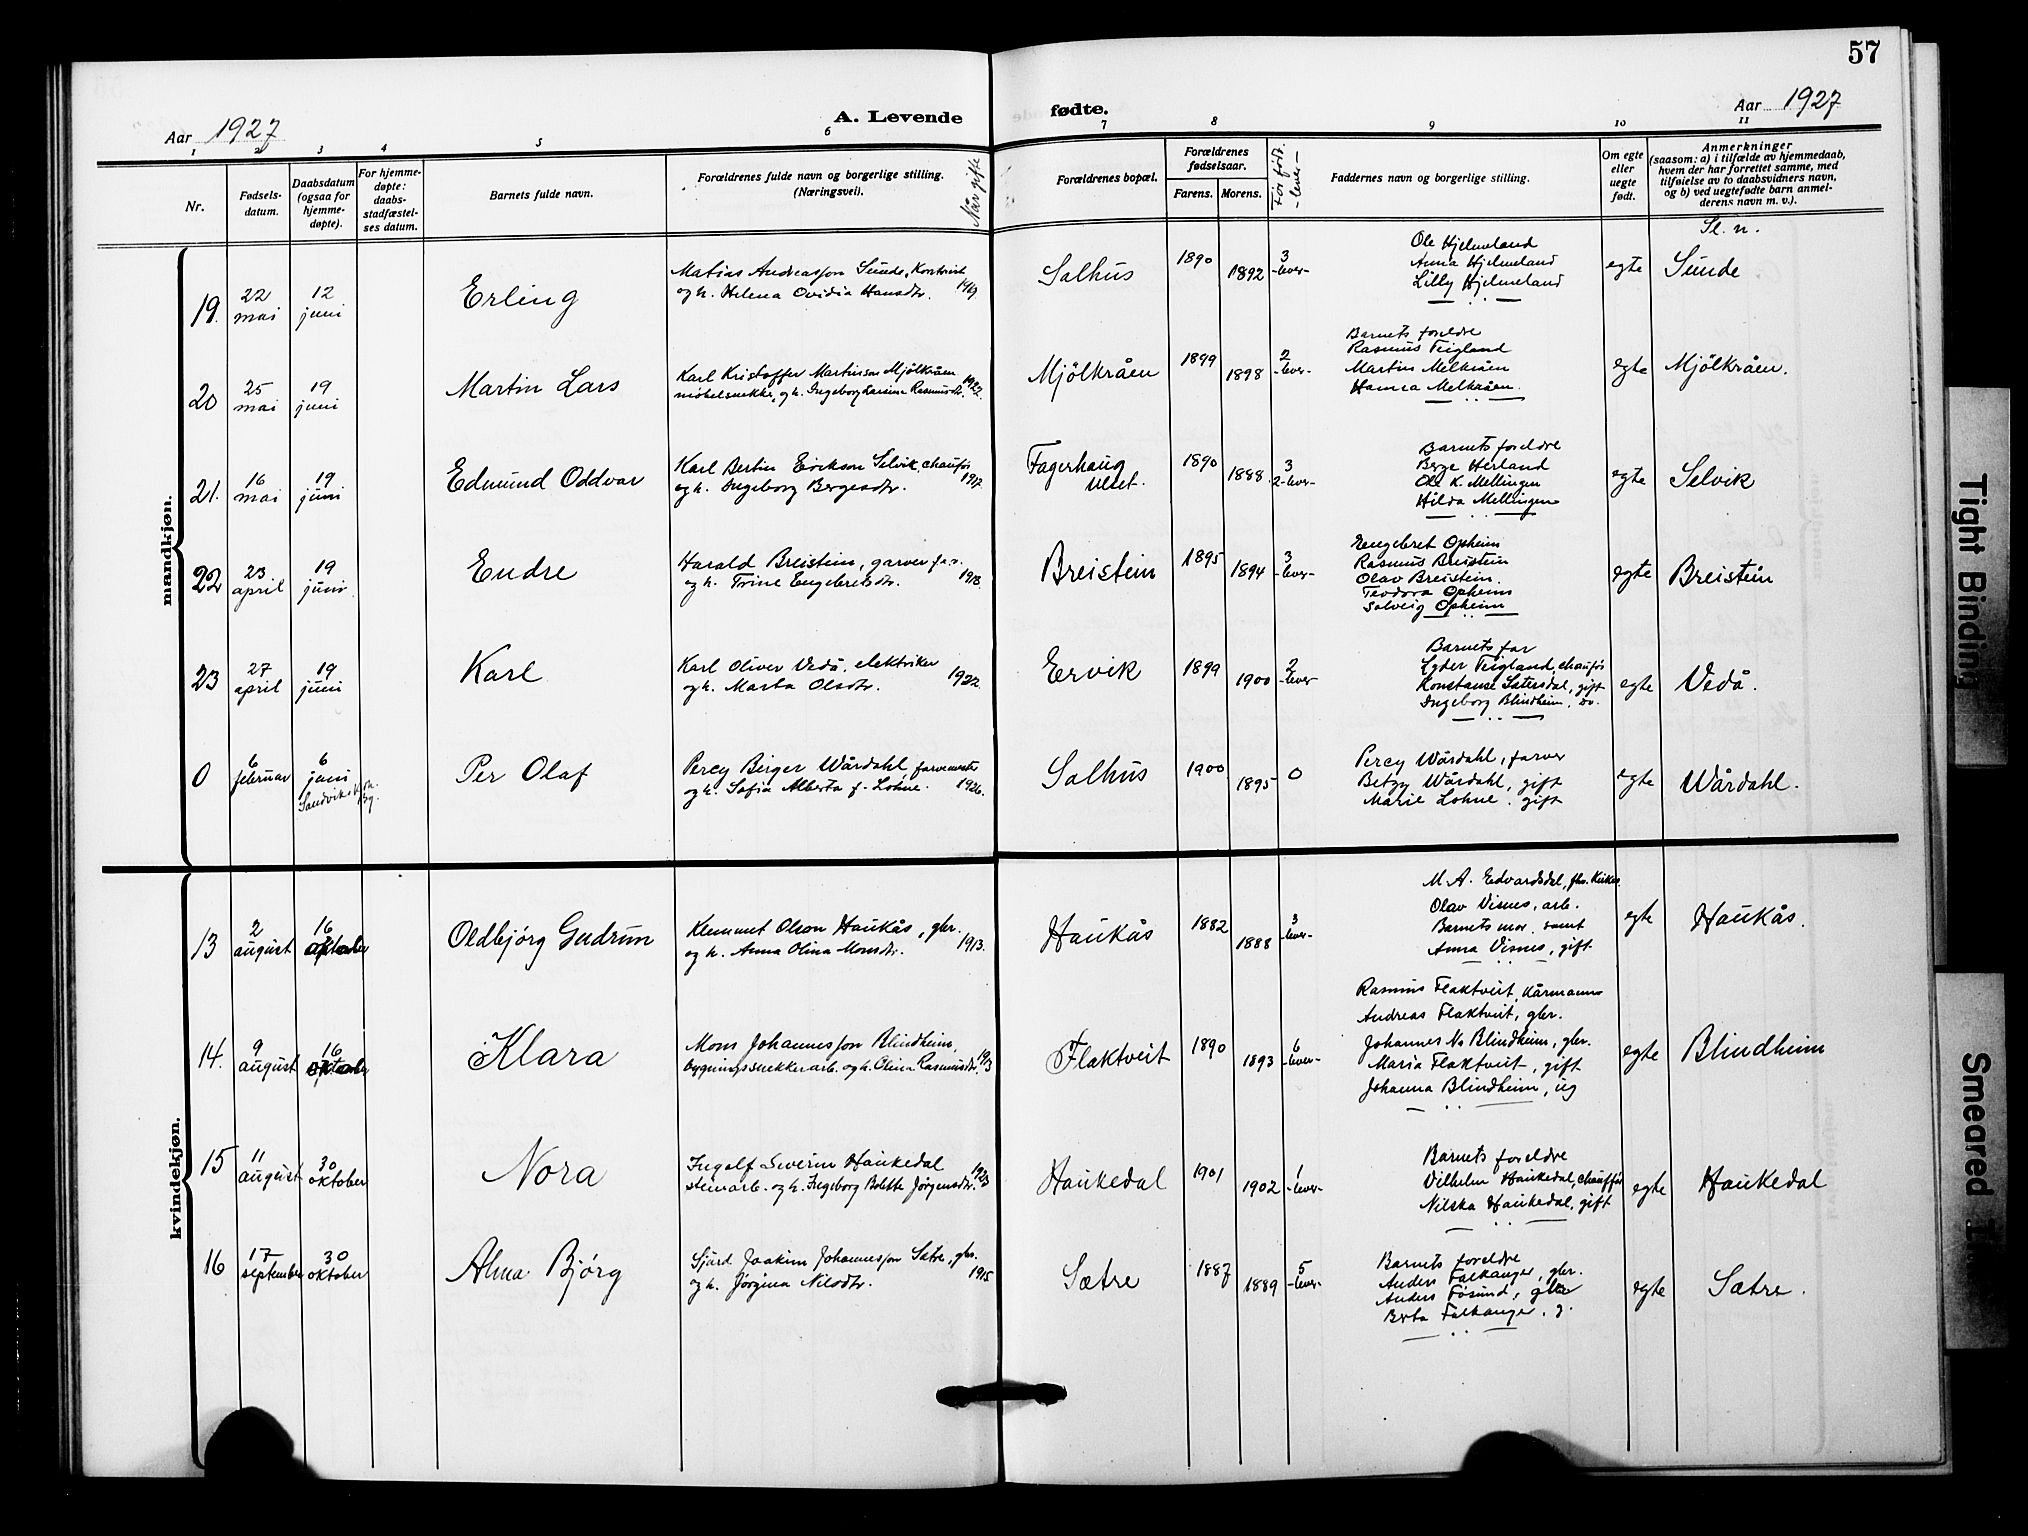 57
A. Levende fødte.
Aar 1927
Aar 1927
1 2 3 4 5 6 7 8 9 10 11
Nr.
Fødsels-
datum.
Daabsdatum
(ogsaa for
hjemme-
døpte).
For hjemme-
døpte:
daabs-
stadfæstel-
ses datum.
Barnets fulde navn.
Forældrenes fulde navn og borgerlige stilling.
(Næringsvei).
Når gifte
Forældrenes bopæl.
Forældrenes
fødselsaar.
Farens. Morens.
Før født.
-lever-
Faddernes navn og borgerlige stilling.
Om egte
eller
uegte
født.
Anmerkninger
(saasom: a) i tilfælde av hjemmedaab,
hvem der har forrettet samme, med
tilføielse av to daabsvidners navn,
og b) ved uegtefødte barn anmel-
derens navn m. v.).
Sl. n.
mandkjøn.
19. 22 mai
12 juni
Erling
Matias Andreasson Sunde, Kontorist
og h. Helena Ovidia Hansdtr. 1919
Salhus
1890
1892
3
-lever-
Ole Hjelmeland
Anna Hjelmeland
Lilly Hjelmeland
egte
Sunde
20 25 mai
19 juni
Martin Lars
Karl Kristoffer Martinson Mjölkråen
møbelsnekke, og h. Ingeborg Larsine Rasmusdtr. 1922.
Mjölkråen
1899
1898
2
-lever-
Barnets foreldre
Rasmus Teigland
Martin Melkråen
Hanna Melkråen.
egte
Mjölkråen.
21. 16 mai
19 juni
Edmund Oddvar
Karl Bertin Erikson Selvik, chauför
og h. Ingeborg Bergesdtr. 1917.
Fagerhaug
Ulset.
1890
1888
3
2-lever-
Barnets foreldre
Berge Herland
Ole K. Mellingen
Hilda Mellingen
egte
Selvik
22 23 april
19 juni
Endre
Harald Breistein, garver f.a.
og h. Trine Engebretsdtr. 1918.
Breistein
1895
1894
3
-lever-
Engebret Opheim
Rasmus Breistein
Olav Breistein.
Teodora Opheim
Solveig Opheim
egte
Breistein
23 27 april
19 juni
Karl
Karl Oliver Vedå, elektriker
og h. Marta Olsdtr. 1922
Ervik
1899
1900
2
-lever-
Barnets far
Lyder Teigland, chauför
Konstanse Sætersdal, gift
Ingeborg Blindheim, Do.
egte
Vedå.
0 6 februar
6 juni
Sandvikskirk.
Bg.
Per Olaf
Percy Birger Wårdahl farvemester
og h. Sofia Alberta f. Lohne. 1926.
Salhus
1900
1895
0
Percy Wårdahl, farver
Betzy Wårdahl, gift
Marie Lohne. gift
egte
Wårdahl.
kvindekjøn.
13 2 august
16 oktober
Oldbjørg Gudrun
Klemmet Olson Haukås, gbr.
og h. Anna Olina Monsdtr. 1913.
Haukås
1882
1888
3
-lever-
M. A. Edvardsdal,
Olav Visnes, arb.
Barnets mor. samt
Anna Visnes, gift
egte
Haukås.
14. 9 august
16 oktober
Klara
Mons Johannesson Blindheim,
bygningssnekkerarb. og h. Olina Rasmusdtr. 1913
Flaktveit
1890
1893
6
-lever-
Rasmus Flaktveit, kårmann
Andreas Flaktveit, gbr.
Johannes Ns Blindheim, gbr.
Maria Flaktveit, gift
Johanna Blindheim, ug
egte
Blindheim
15 11 august
30 oktober
Nora
Ingolf Severin Haukedal
steinarb. og h. Ingeborg Bolette Jörgensdtr. 1923
Haukedal
1901
1902
1
-lever-
Barnets foreldre
Vilhelm Haukedal, chauffør
Nilska Haukedal, gift
egte
Haukedal
16 17 september
30 oktober
Alma Bjørg
Sjurd Joakim Johannesson Sætre, gbr.
og h. Jörgina Nilsdtr. 1915
Sætre
1887
1889
5
-lever-
Barnets foreldre
Anders Falkanger, gbr.
Anders Fosund, gbr
Berta Falkanger, g.
egte
Sætre.
Tight Binding
Smeared